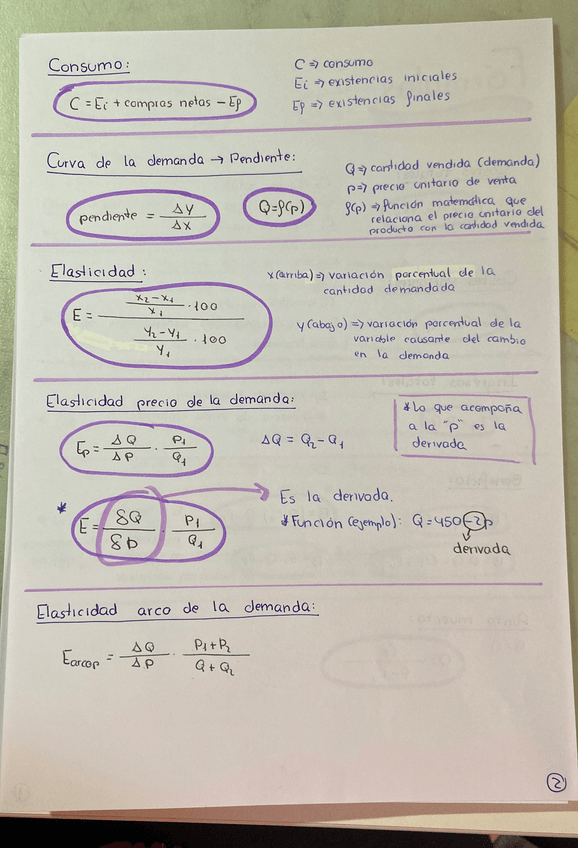 Consumo:
C = Ei + compras netas - Ef
C => consumo
Ei => existencias iniciales
Ef => existencias finales
Curva de la demanda → Pendiente:
pendiente = ΔY / ΔX
Q=f(p)
Q => cantidad vendida (demanda)
p => precio unitario de venta
f(p) => función matemática que
relaciona el precio unitario del
producto con la cantidad vendida
Elasticidad:
E = ((x2 - x1) / x1 · 100) / ((y2 - y1) / y1 · 100)
x (arriba) => variación porcentual de la
cantidad demandada
y (abajo) => variación porcentual de la
variable causante del cambio
en la demanda
Elasticidad precio de la demanda:
Ep = ΔQ / ΔP · P1 / Q1
ΔQ = Q2 - Q1
*Lo que acompaña
a la "p" es la
derivada
* E = δQ / δP · P1 / Q1
Es la derivada.
*Función (ejemplo): Q=450-2p
derivada
Elasticidad arco de la demanda:
Earcop = ΔQ / ΔP · P1+P2 / Q+Q2
2